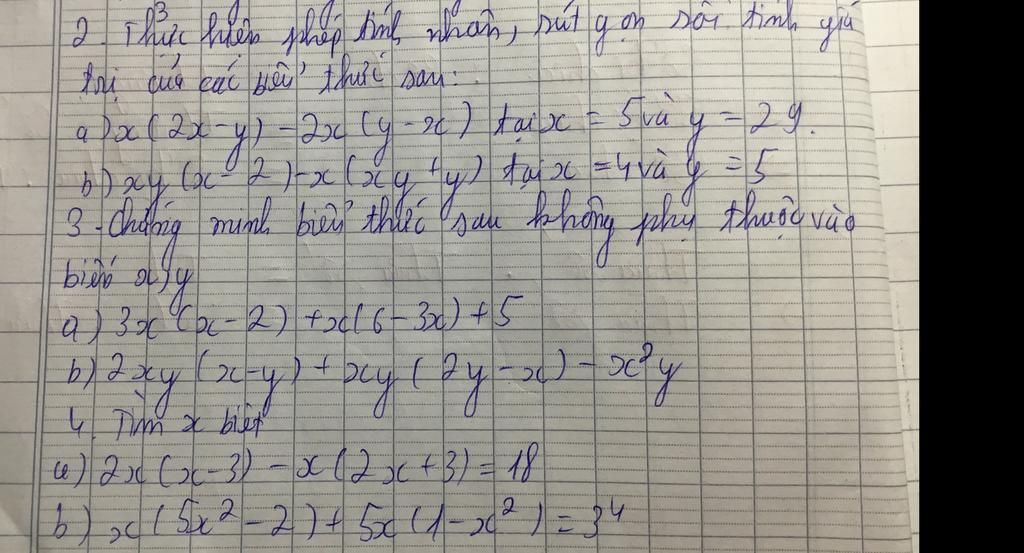 2. Thực hiện phép tính nhân, rút gọn rồi tính giá
trị của các biểu thức sau:
a) x(2x-y)-2x(y-x) tại x=5 và y=29.
b) xy(x-2)-x(xy+y) tại x=4 và y=5
3. Chứng minh biểu thức sau không phụ thuộc vào
biến x, y
a) 3x(x-2)+x(6-3x)+5
b) 2xy(x-y)+xy(2y-x)-x²y
4. Tìm x biết
a) 2x(x-3)-x(2x+3)=18
b) x(5x²-2)+5x(1-x²)=3⁴